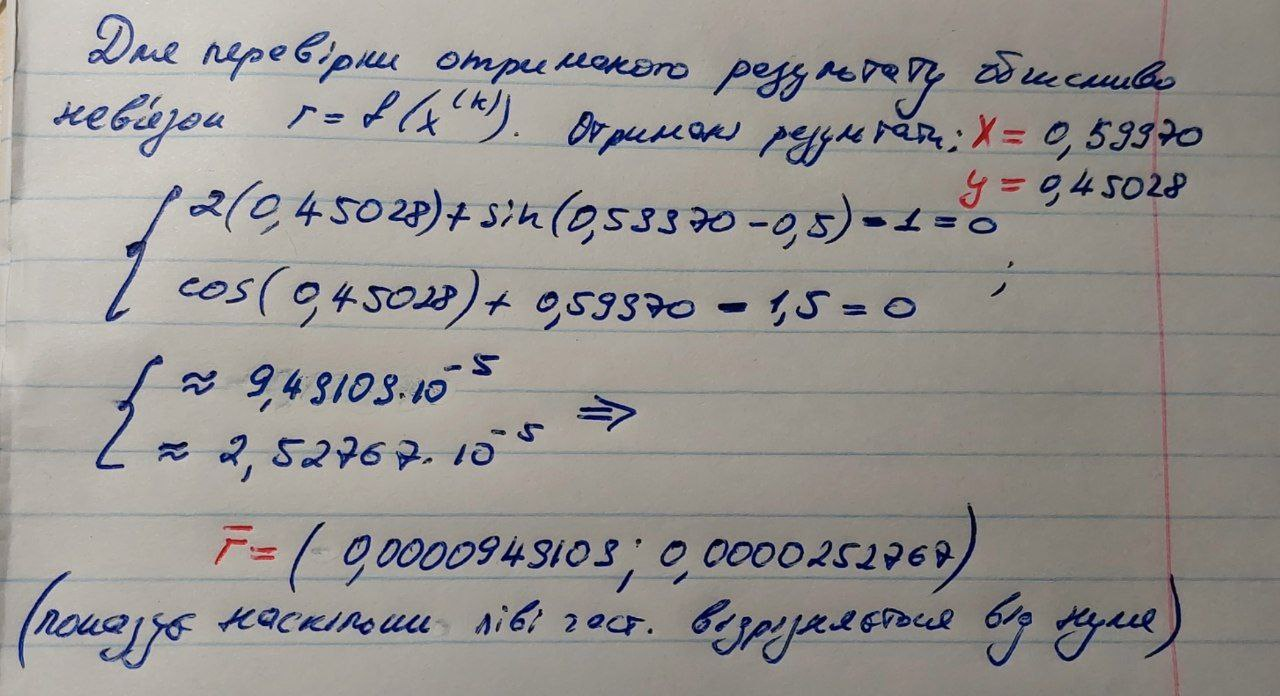 Для перевірки отриманого результату обчислимо
нев'язок r = f(x^(k)). Отримані результати: x = 0,59970
y = 0,45028
{ 2(0,45028) + sin(0,59970 - 0,5) - 1 = 0
cos(0,45028) + 0,59970 - 1,5 = 0 ;
{ ≈ 9,49109·10^-5
≈ 2,52767·10^-5 ⇒
r̄ = (0,0000949109; 0,0000252767)
(показує наскільки ліві част. відрізняється від нуля)